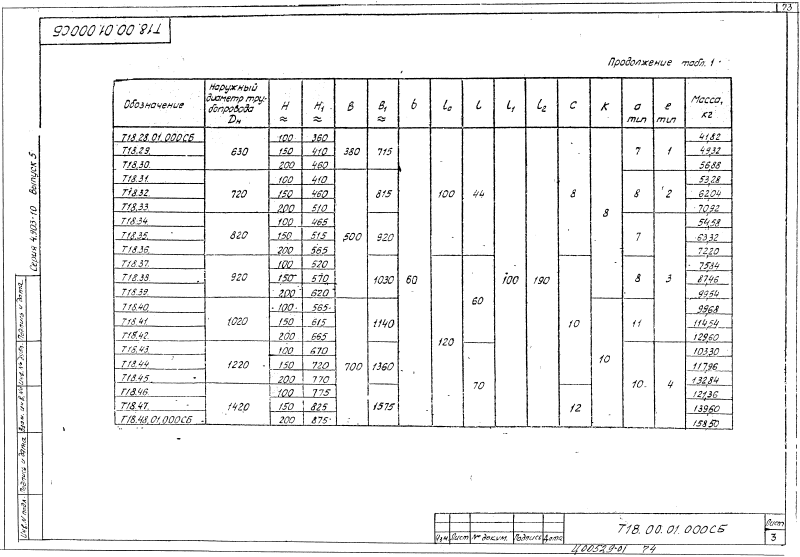 73
Т18.00.01.000СБ
Продолжение табл. 1
Обозначение Наружный диаметр трубопровода Dн H ≈ H1 ≈ B B1 ≈ b l0 l l1 l2 C K a min e min Масса, кг
Т18.28.01.000СБ 630 100 360 380 715 60 100 44 100 190 8 8 7 1 41,82
Т18.29. 150 410 49,32
Т18.30. 200 460 56,88
Т18.31. 720 100 410 500 815 8 2 53,28
Т18.32. 150 460 62,04
Т18.33. 200 510 70,92
Т18.34. 820 100 465 920 7 3 54,58
Т18.35. 150 515 63,32
Т18.36. 200 565 72,20
Т18.37. 920 100 520 1030 120 60 10 8 75,84
Т18.38. 150 570 87,46
Т18.39. 200 620 99,54
Т18.40. 1020 100 565 700 1140 10 11 99,68
Т18.41. 150 615 114,54
Т18.42. 200 665 129,60
Т18.43. 1220 100 670 1360 70 10 4 103,30
Т18.44. 150 720 117,96
Т18.45. 200 770 132,84
Т18.46. 1420 100 775 1575 12 121,36
Т18.47. 150 825 139,60
Т18.48.01.000СБ 200 875 158,50
Серия 4.903-10 Выпуск 5
Инв. № подл. Подпись и дата Взам. инв. № Инв. № дубл. Подпись и дата
Изм. Лист № докум. Подпись Дата
Т18.00.01.000СБ
Лист
3
Ц00529-01 74